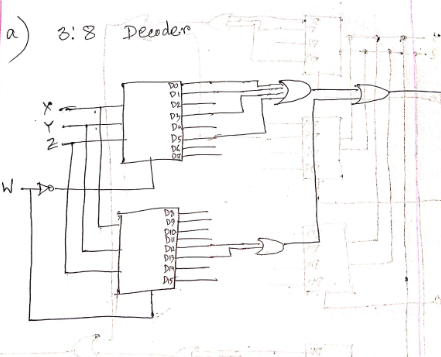 a) 3:8 Decoder
D0
D1
D2
D3
D4
D5
D6
X
Y
Z
W
D8
D9
D10
D11
D12
D13
D14
D15